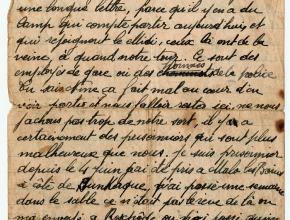 une longue lettre, parce qu'il y en a du
Camp qui compte partir aujourd'hui, et
qui rejoignent le midi, ceux là ont de la
veine, à quand notre tour. Ce sont des
hommes
employés de gare ou des cheminots de la police
tu sais chine ça fait mal au cœur d'en
voir partir et nous falloir rester ici, ne nous
fachons pas trop de notre sort, il y a
certainement des prisonniers qui sont plus
malheureux que nous. Je suis prisonnier
depuis le 4 juin j'ai été pris à Malo les Bains
à côté de Dunkerque, j'ai passé une semaine
dans le sable ce n'était pas rêve de là on
m'a envoyé à Rexpoëde ou j'ai